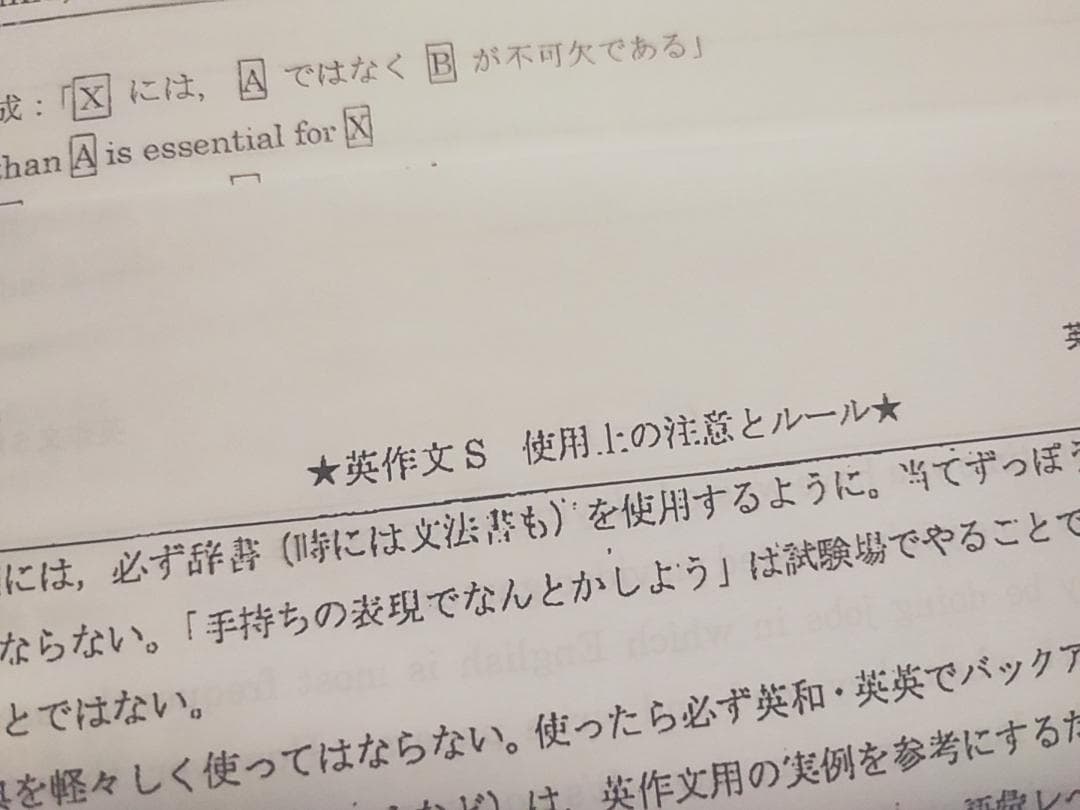 成：「X には，A ではなく B が不可欠である」
than A is essential for X
英
★英作文S 使用上の注意とルール★
には，必ず辞書（時には文法書も）を使用するように。当てずっぽう
ならない。「手持ちの表現でなんとかしよう」は試験場でやることで
とではない。
を軽々しく使ってはならない。使ったら必ず英和・英英でバックア
など）は，英作文用の実例を参考にするた